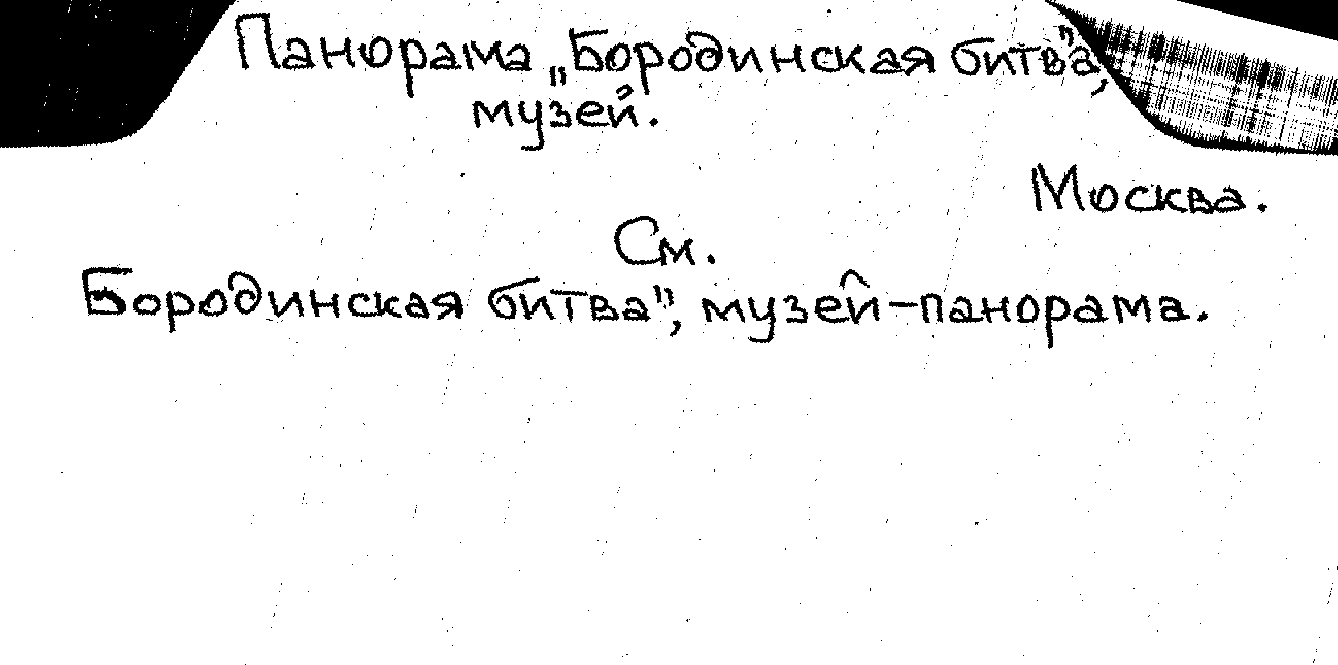 Панорама „Бородинская битва",
музей.
Москва.
См.
Бородинская битва", музей-панорама.